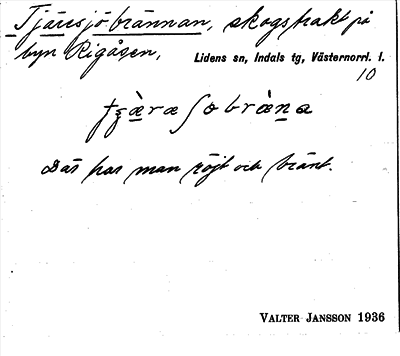 Tjäresjöbrännan, skogstrakt på
byn Rigåsen, Lidens sn, Indals tg, Västernorrl. l.
10
Där har man röjt och bränt.
VALTER JANSSON 1936